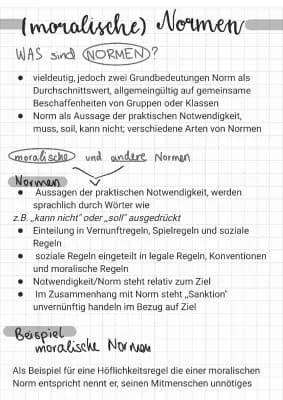 (moralische) Normen
WAS sind NORMEN?
● vieldeutig, jedoch zwei Grundbedeutungen Norm als
Durchschnittswert, allgemeingültig auf gemeinsame
Beschaffenheiten von Gruppen oder Klassen
● Norm als Aussage der praktischen Notwendigkeit,
muss, soll, kann nicht; verschiedene Arten von Normen
moralische und andere Normen
Normen
● Aussagen der praktischen Notwendigkeit, werden
sprachlich durch Wörter wie
z.B. „kann nicht" oder „soll" ausgedrückt
● Einteilung in Vernunftregeln, Spielregeln und soziale
Regeln
● soziale Regeln eingeteilt in legale Regeln, Konventionen
und moralische Regeln
● Notwendigkeit/Norm steht relativ zum Ziel
● Im Zusammenhang mit Norm steht „Sanktion"
unvernünftig handeln im Bezug auf Ziel
Beispiel
moralische Normen
Als Beispiel für eine Höflichkeitsregel die einer moralischen
Norm entspricht nennt er, seinen Mitmenschen unnötiges